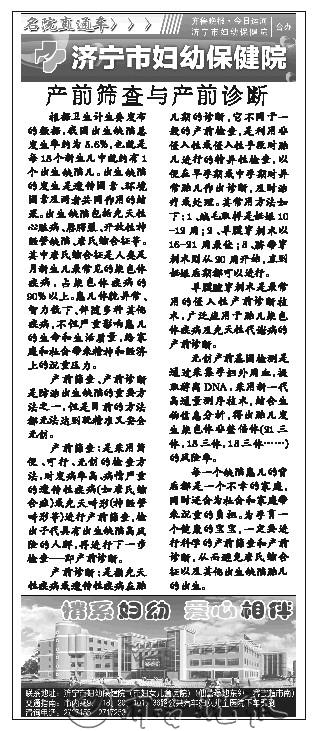 名院直通车
齐鲁晚报·今日运河
济宁市妇幼保健院
合办
济宁市妇幼保健院
产前筛查与产前诊断
根据卫生计生委发布
的数据,我国出生缺陷总
发生率约为5.6%,也就是
每18个新生儿中就约有1
个出生缺陷儿。出生缺陷
的发生是遗传因素、环境
因素及两者共同作用的结
果。出生缺陷包括先天性
心脏病、唇腭裂、开放性神
经管缺陷、唐氏综合征等。
其中唐氏综合征是人类足
月新生儿最常见的染色体
疾病,占染色体疾病的
90%以上。患儿体貌异常、
智力低下、伴随多种其他
疾病,不仅严重影响患儿
的生命和生活质量,给家
庭和社会带来精神和经济
上的沉重压力。
产前筛查、产前诊断
是防治出生缺陷的重要方
法之一,但是目前的方法
都无法达到既精准又安全
无创。
产前筛查:是采用简
便、可行、无创的检查方
法,对发病率高、病情严重
的遗传性疾病(如唐氏综
合症)或先天畸形(神经管
畸形等)进行产前筛查,检
出子代具有出生缺陷高风
险的人群,再进行下一步
检查——即产前诊断。
产前诊断:是指先天
性疾病或遗传性疾病在胎
儿期的诊断,它不同于一
般的产前检查,是利用非
侵入性或侵入性手段对胎
儿进行的特异性检查,以
便在孕早期或中孕期对异
常胎儿作出诊断,及时治
疗或处理。其常用方法如
下:1、绒毛取样是妊娠10
-12周;2、羊膜穿刺术以
16-21周最佳;3、脐带穿
刺术则从20周开始,直到
妊娠后期都可以进行。
羊膜腔穿刺术是最常
用的侵入性产前诊断技
术,广泛应用于胎儿染色
体疾病及先天性代谢病的
产前诊断。
无创产前基因检测是
通过采集孕妇外周血,提
取游离DNA,采用新一代
高通量测序技术,结合生
物信息分析,得出胎儿发
生染色体非整倍体(21三
体,18三体,13三体……)
的风险率。
每一个缺陷患儿的背
后都是一个不幸的家庭,
同时还会为社会和家庭带
来沉重的负担。为孕育一
个健康的宝宝,一定要进
行科学的产前筛查和产前
诊断,从而避免唐氏综合
征以及其他出生缺陷胎儿
的出生。
情系妇幼 爱心相伴
联系地址:济宁市妇幼保健院(市妇女儿童医院)